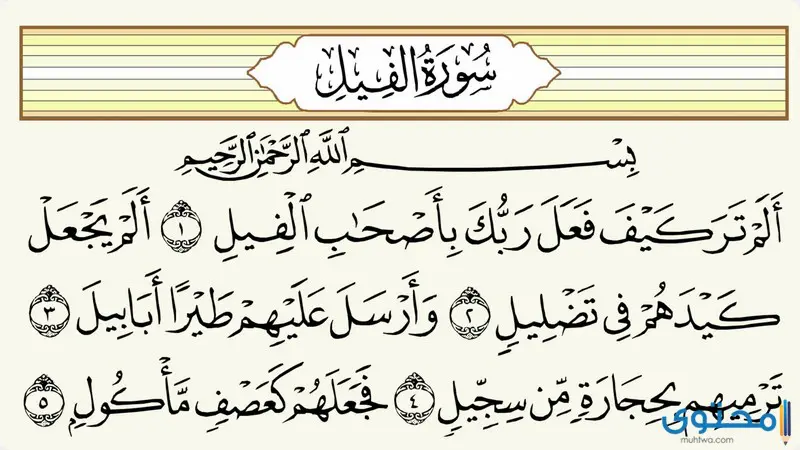 سُورَةُ الْفِيلِ
بِسْمِ ٱللَّهِ ٱلرَّحْمَٰنِ ٱلرَّحِيمِ
أَلَمْ تَرَ كَيْفَ فَعَلَ رَبُّكَ بِأَصْحَٰبِ ٱلْفِيلِ ١ أَلَمْ يَجْعَلْ
كَيْدَهُمْ فِي تَضْلِيلٍ ٢ وَأَرْسَلَ عَلَيْهِمْ طَيْرًا أَبَابِيلَ ٣
تَرْمِيهِم بِحِجَارَةٍ مِّن سِجِّيلٍ ٤ فَجَعَلَهُمْ كَعَصْفٍ مَّأْكُولٍ ٥
محتوى
muhtwa.com